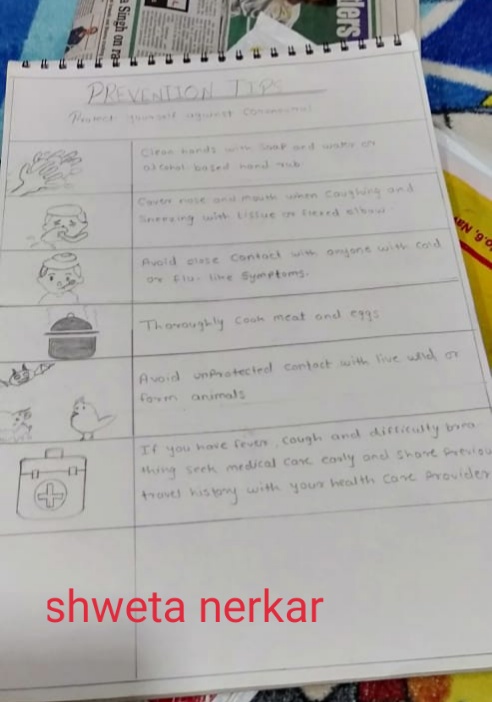 a Singh on ra
lders
PREVENTION TIPS
Protect yourself against Coronavirus
Clean hands with soap and water or
alcohol based hand rub.
Cover nose and mouth when coughing and
Sneezing with tissue or flexed elbow
Avoid close contact with anyone with cold
or flu-like symptoms.
Thoroughly cook meat and eggs
Avoid unprotected contact with live wild or
farm animals
If you have fever, cough and difficulty brea
thing seek medical care early and share previou
travel history with your health care provider
shweta nerkar